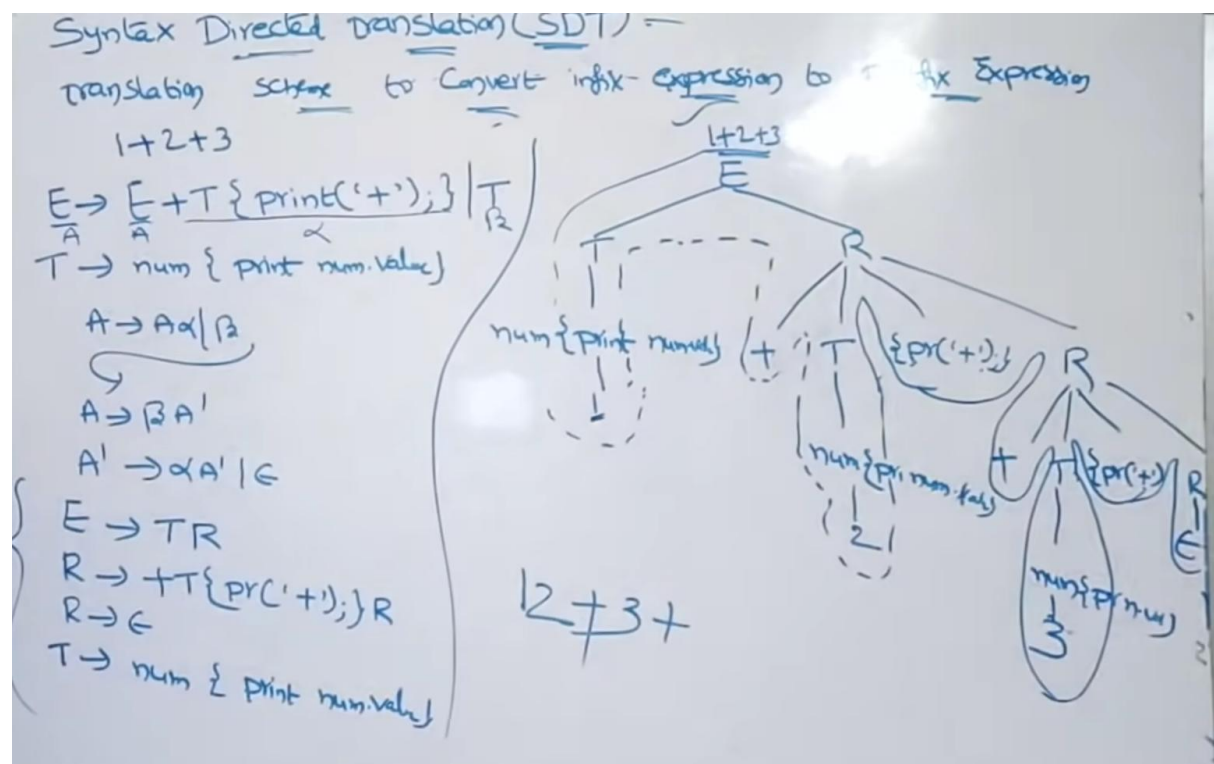 Syntax Directed Translation (SDT) =
Translation Scheme to Convert infix-expression to fix Expression
1+2+3
E → E + T { print('+'); } | T
A A α β
T → num { print num.value}
A → Aα | β
A → βA'
A' → αA' | ∈
E → TR
R → +T{pr('+');}R
R → ∈
T → num { print num.value}
1+2+3
E
T R
num {print num.val} + T {pr('+');} R
1
num{pr num.val} + T {pr('+')} R
2 ∈
num{pr num}
3
12+3+